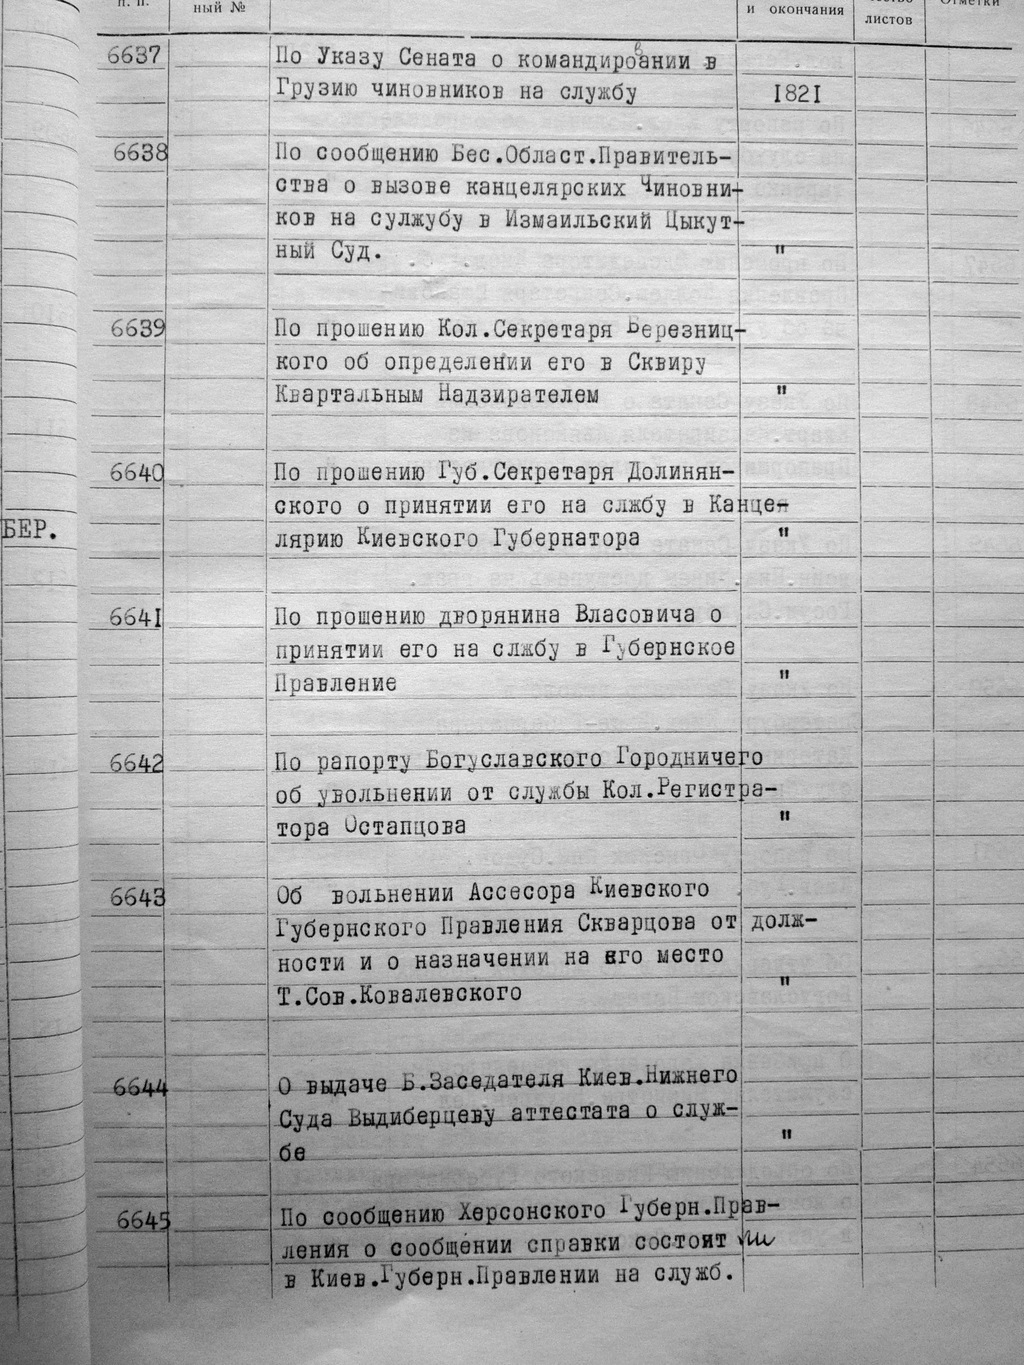 п. п.
ный №
и окончания
листов
Отметки
6637
По Указу Сената о командировании в
Грузию чиновников на службу 1821
6638
По сообщению Бес.Област.Правитель-
ства о вызове канцелярских Чиновни-
ков на сулжубу в Измаильский Цыкут-
ный Суд. "
6639
По прошению Кол.Секретаря Березниц-
кого об определении его в Сквиру
Квартальным Надзирателем "
6640
По прошению Губ.Секретаря Долинян-
ского о принятии его на слжбу в Канце-
БЕР.
лярию Киевского Губернатора "
6641
По прошению дворянина Власовича о
принятии его на слжбу в Губернское
Правление "
6642
По рапорту Богуславского Городничего
об увольнении от службы Кол.Регистра-
тора Остапцова "
6643
Об вольнении Ассесора Киевского
Губернского Правления Скварцова от долж-
ности и о назначении на его место
Т.Сов.Ковалевского "
6644
О выдаче Б.Заседателя Киев.Нижнего
Суда Выдиберцеву аттестата о служ-
бе "
6645
По сообщению Херсонского Губерн.Прав-
ления о сообщении справки состоит ли
в Киев.Губерн.Правлении на служб.